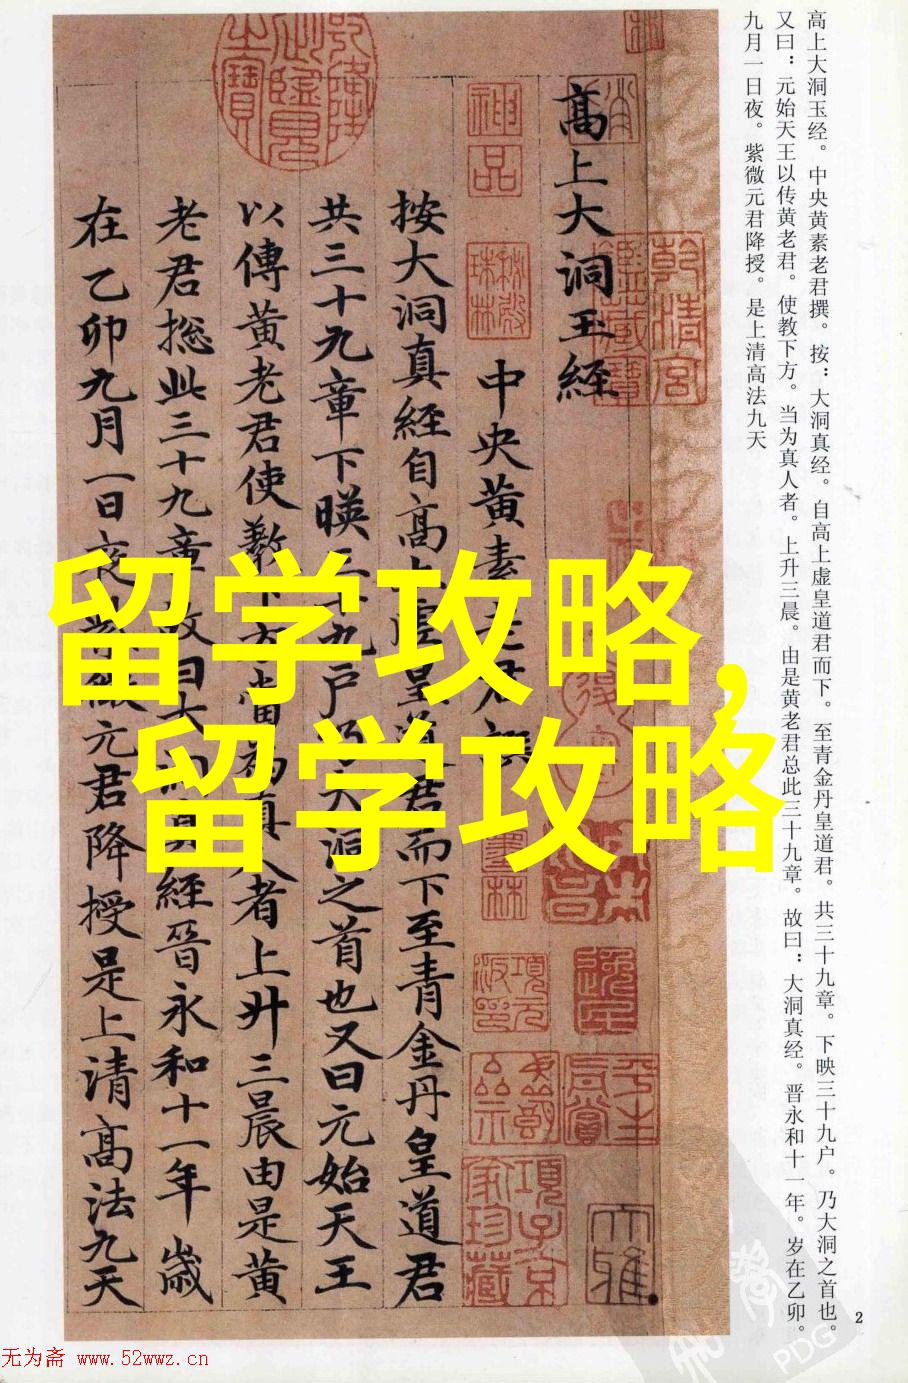 高上大洞玉经。中央黄素老君撰。按：大洞真经。自高上虚皇道君而下。至青金丹皇道君。共三十九章。下映三十九户。乃大洞之首也。
又曰：元始天王以传黄老君。使教下方。当为真人者。上升三晨。由是黄老君总此三十九章。故曰：大洞真经。晋永和十一年。岁在乙卯。
九月一日夜。紫微元君降授。是上清高法九天
高上大洞玉經
中央黄素老君撰
按大洞真經自高上虚皇道君而下至青金丹皇道君
共三十九章下暎三十九户乃大洞之首也又曰元始天王
以傳黄老君使教下方當為真人者上升三晨由是黄
老君揔此三十九章故曰大洞真經晉永和十一年歲
在乙卯九月一日夜紫微元君降授是上清髙法九天
神品
乾清宫鑑藏寶
項子京家珍藏
留学攻略,
留学攻略
2
PDG
无为斋 www.52wwz.cn